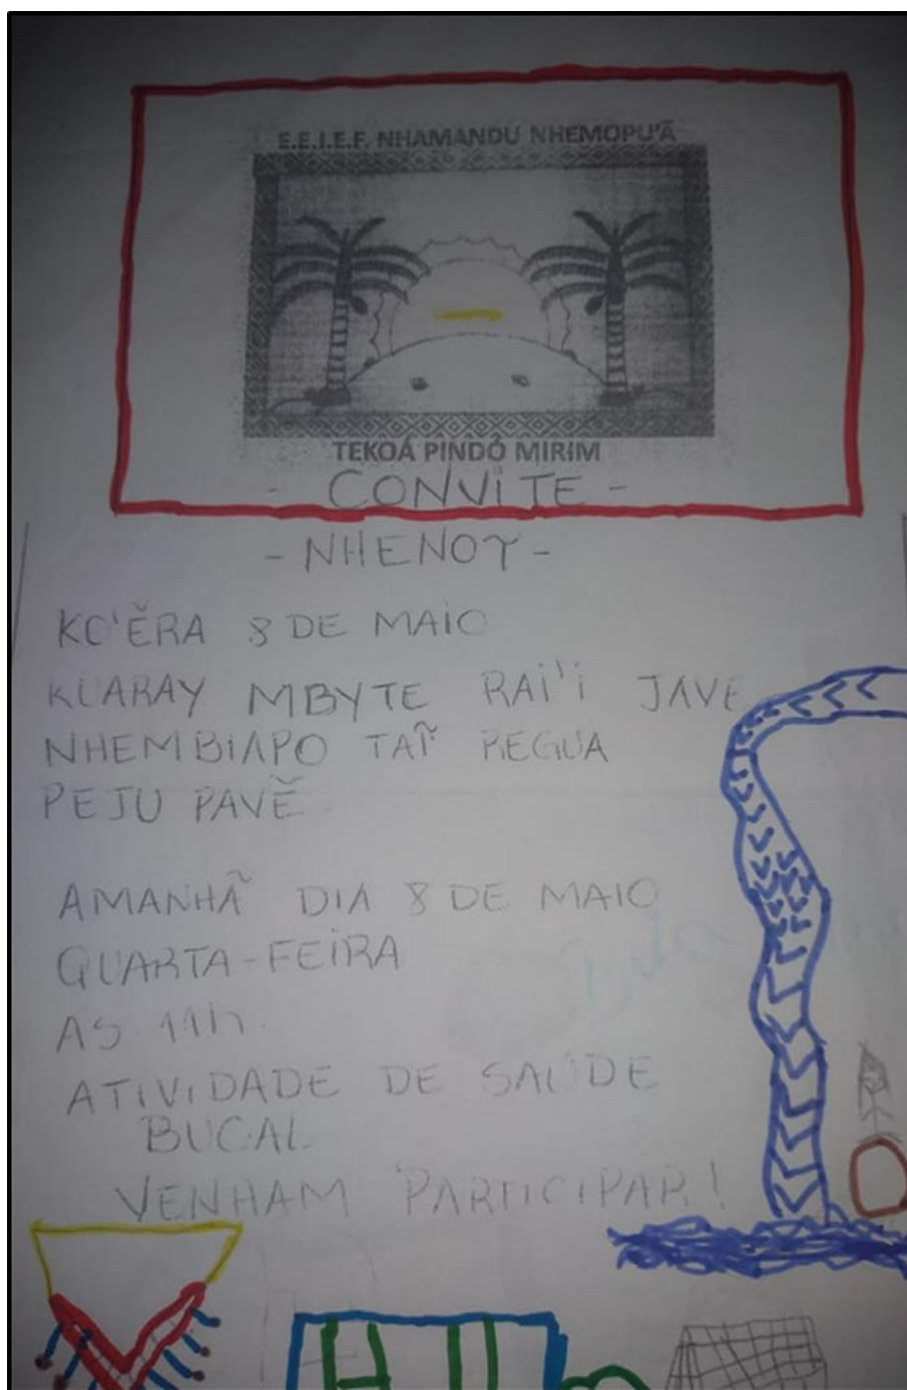 E.E.I.E.F. NHAMANDU NHEMOPU'Ã
TEKOÁ PINDÓ MIRIM
- CONVITE -
- NHENOY -
KO'ẼRA 8 DE MAIO
KUARAY MBYTE RAI'I JAVE
NHEMBIAPO TAỸ REGUA
PEJU PAVẼ
AMANHÃ DIA 8 DE MAIO
QUARTA-FEIRA
AS 11h
ATIVIDADE DE SAÚDE
BUCAL
VENHAM PARTICIPAR!